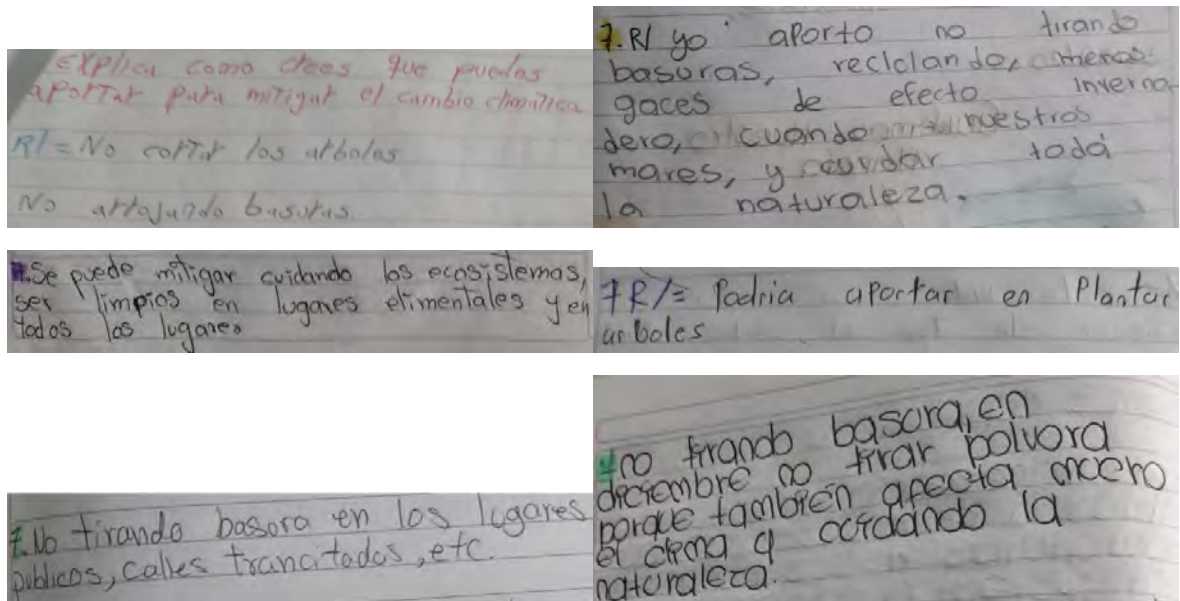 Explica como crees que puedas
aportar para mitigar el cambio climatica
R/= No cortar los arboles
No arrojando basuras.
7. R/ yo aporto no tirando
basuras, reciclando, menos
gaces de efecto inverna
dero, cuando nuestros
mares, y cuidar toda
la naturaleza.
7. Se puede mitigar cuidando los ecosistemas,
ser limpios en lugares elimentales y en
todos los lugares
7 R/= Podria aportar en Plantar
arboles
7. No tirando basora en los lugares
publicos, calles trancitadas, etc.
7 no tirando basora, en
diciembre no tirar polvora
porque tambien afecta
el clima y coidando la
naturaleza.